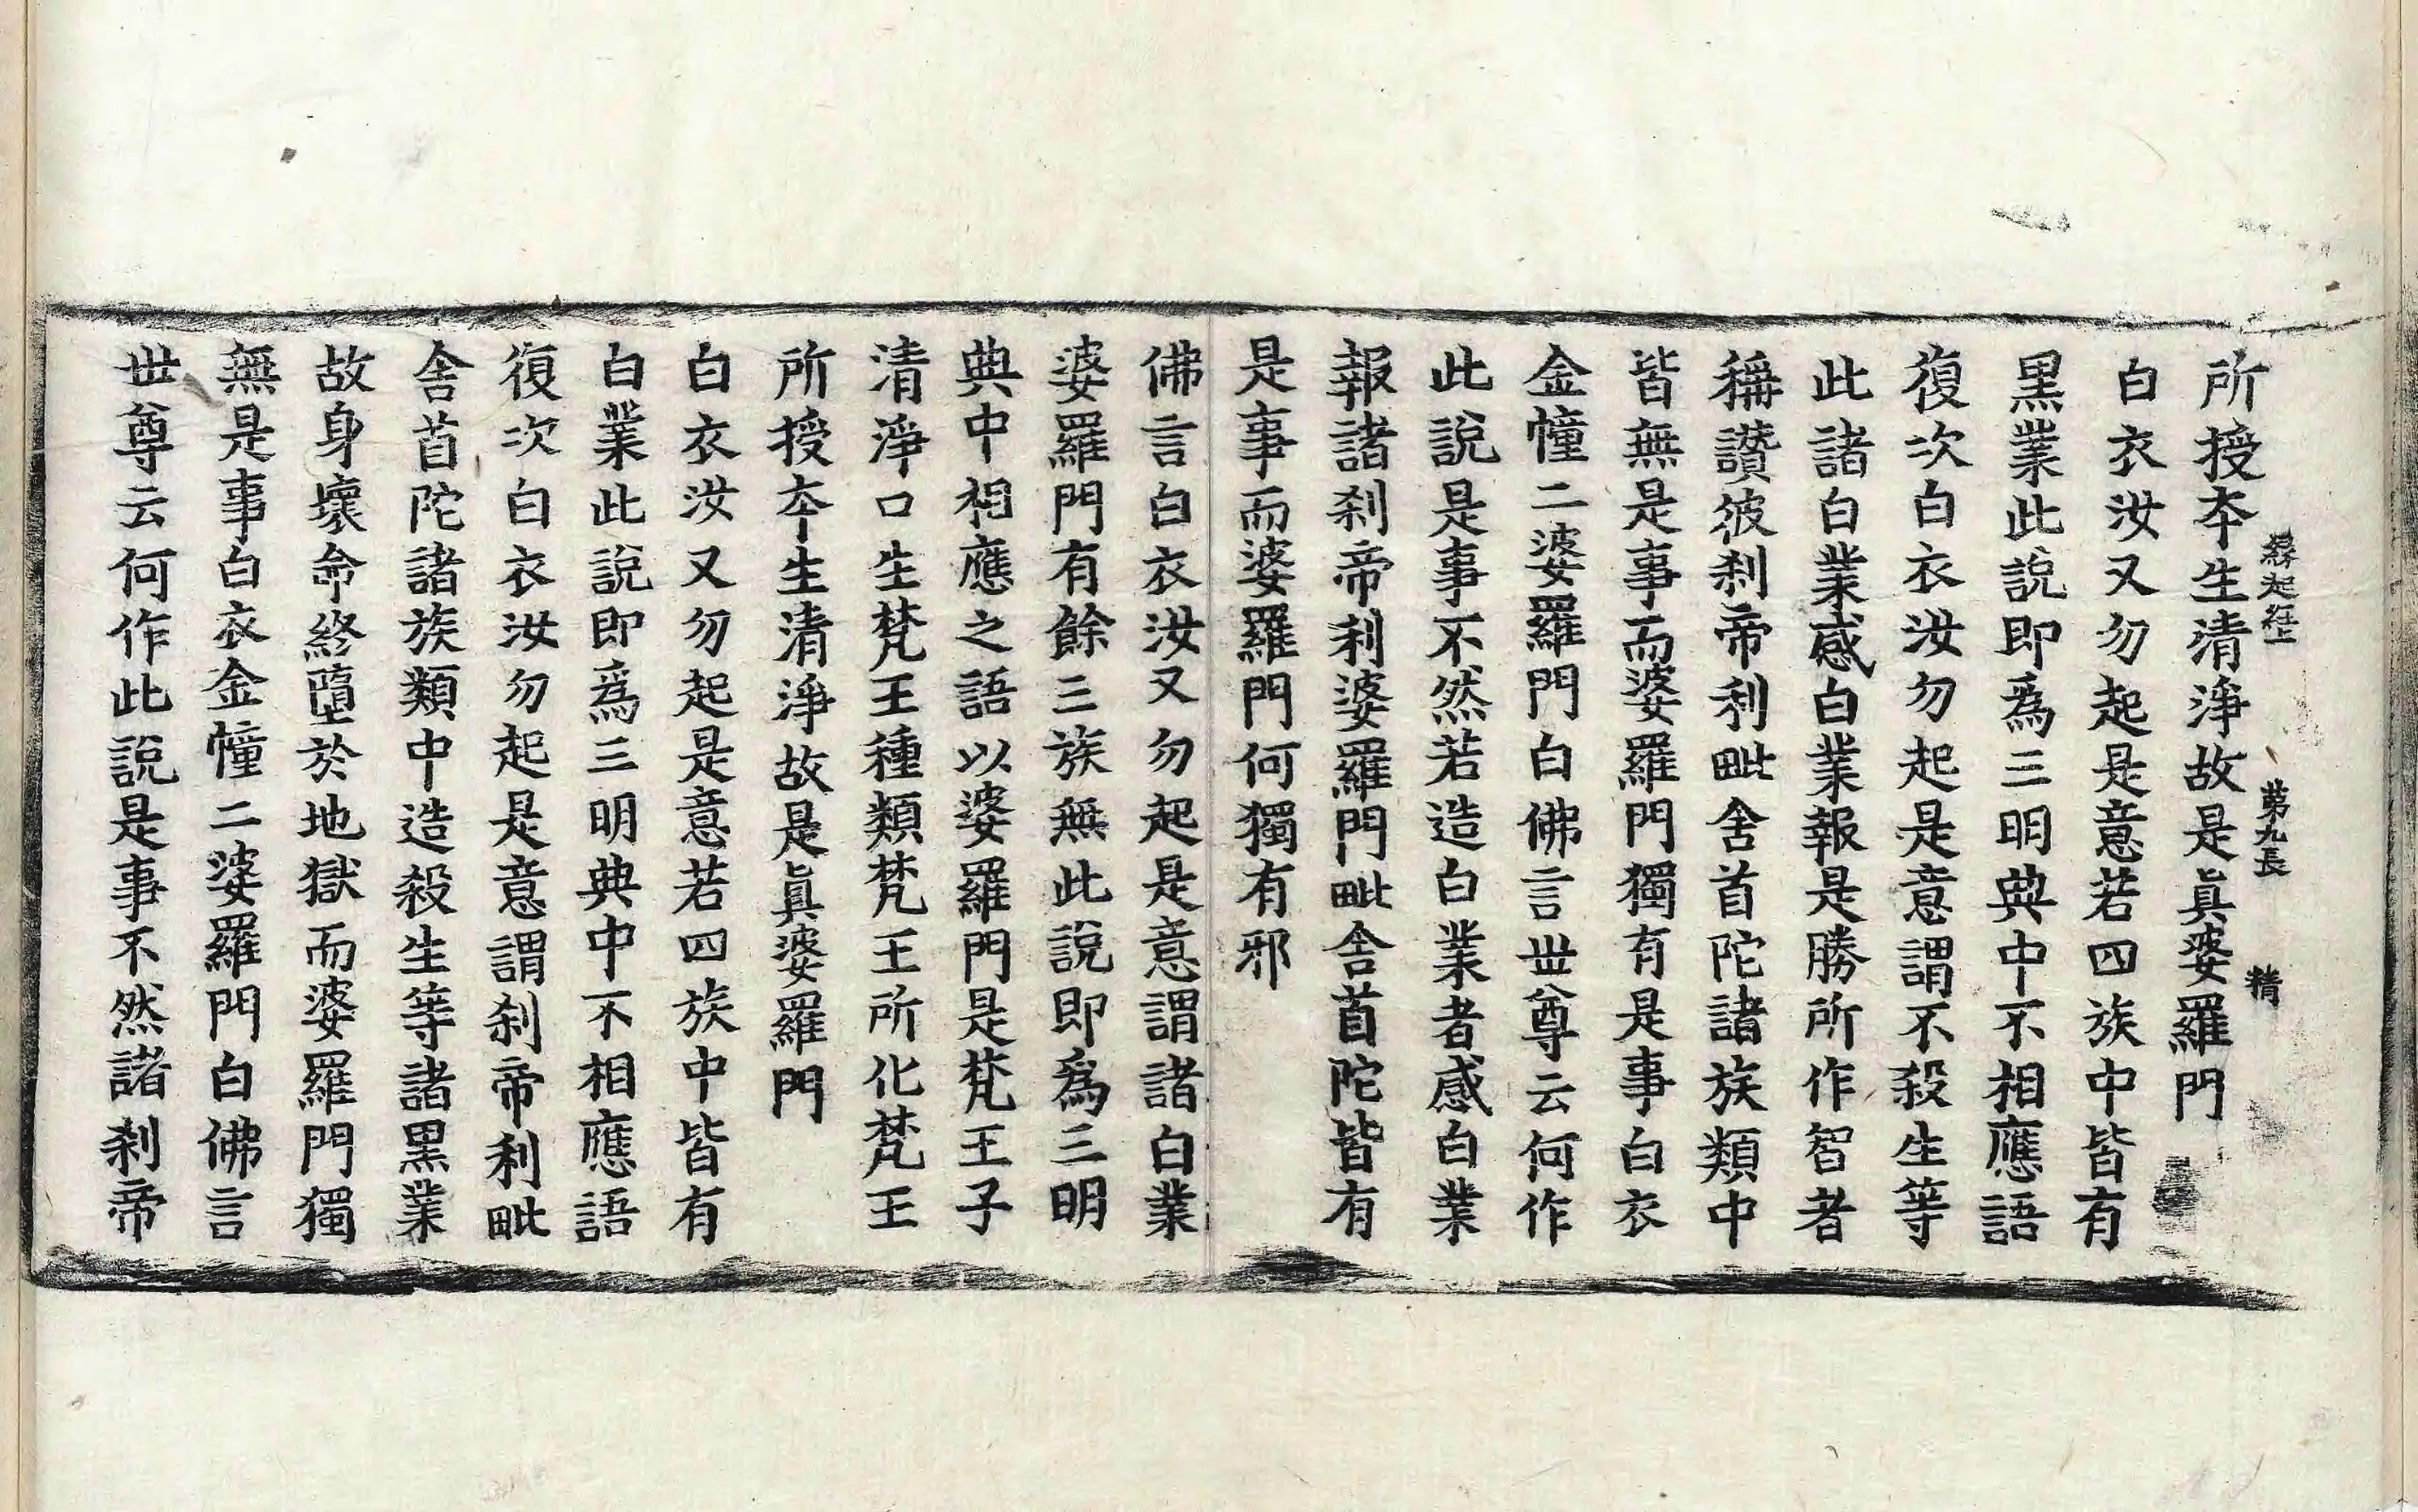 所授夲生清淨故是眞婆羅門
緣起經上 第九長 精
白衣汝又勿起是意若四族中皆有
黑業此說即爲三明典中不相應語
復次白衣汝勿起是意謂不殺生等
此諸白業感白業報是勝所作智者
稱讚彼刹帝利毗舍首陀諸族類中
皆無是事而婆羅門獨有是事白衣
金幢二婆羅門白佛言世尊云何作
此說是事不然若造白業者感白業
報諸刹帝利婆羅門毗舍首陀皆有
是事而婆羅門何獨有邪
佛言白衣汝又勿起是意謂諸白業
婆羅門有餘三族無此說即爲三明
典中相應之語以婆羅門是梵王子
清淨口生梵王種類梵王所化梵王
所授夲生清淨故是眞婆羅門
白衣汝又勿起是意若四族中皆有
白業此說即爲三明典中不相應語
復次白衣汝勿起是意謂刹帝利毗
舍首陀諸族類中造殺生等諸黑業
故身壞命終墮於地獄而婆羅門獨
無是事白衣金幢二婆羅門白佛言
世尊云何作此說是事不然諸刹帝